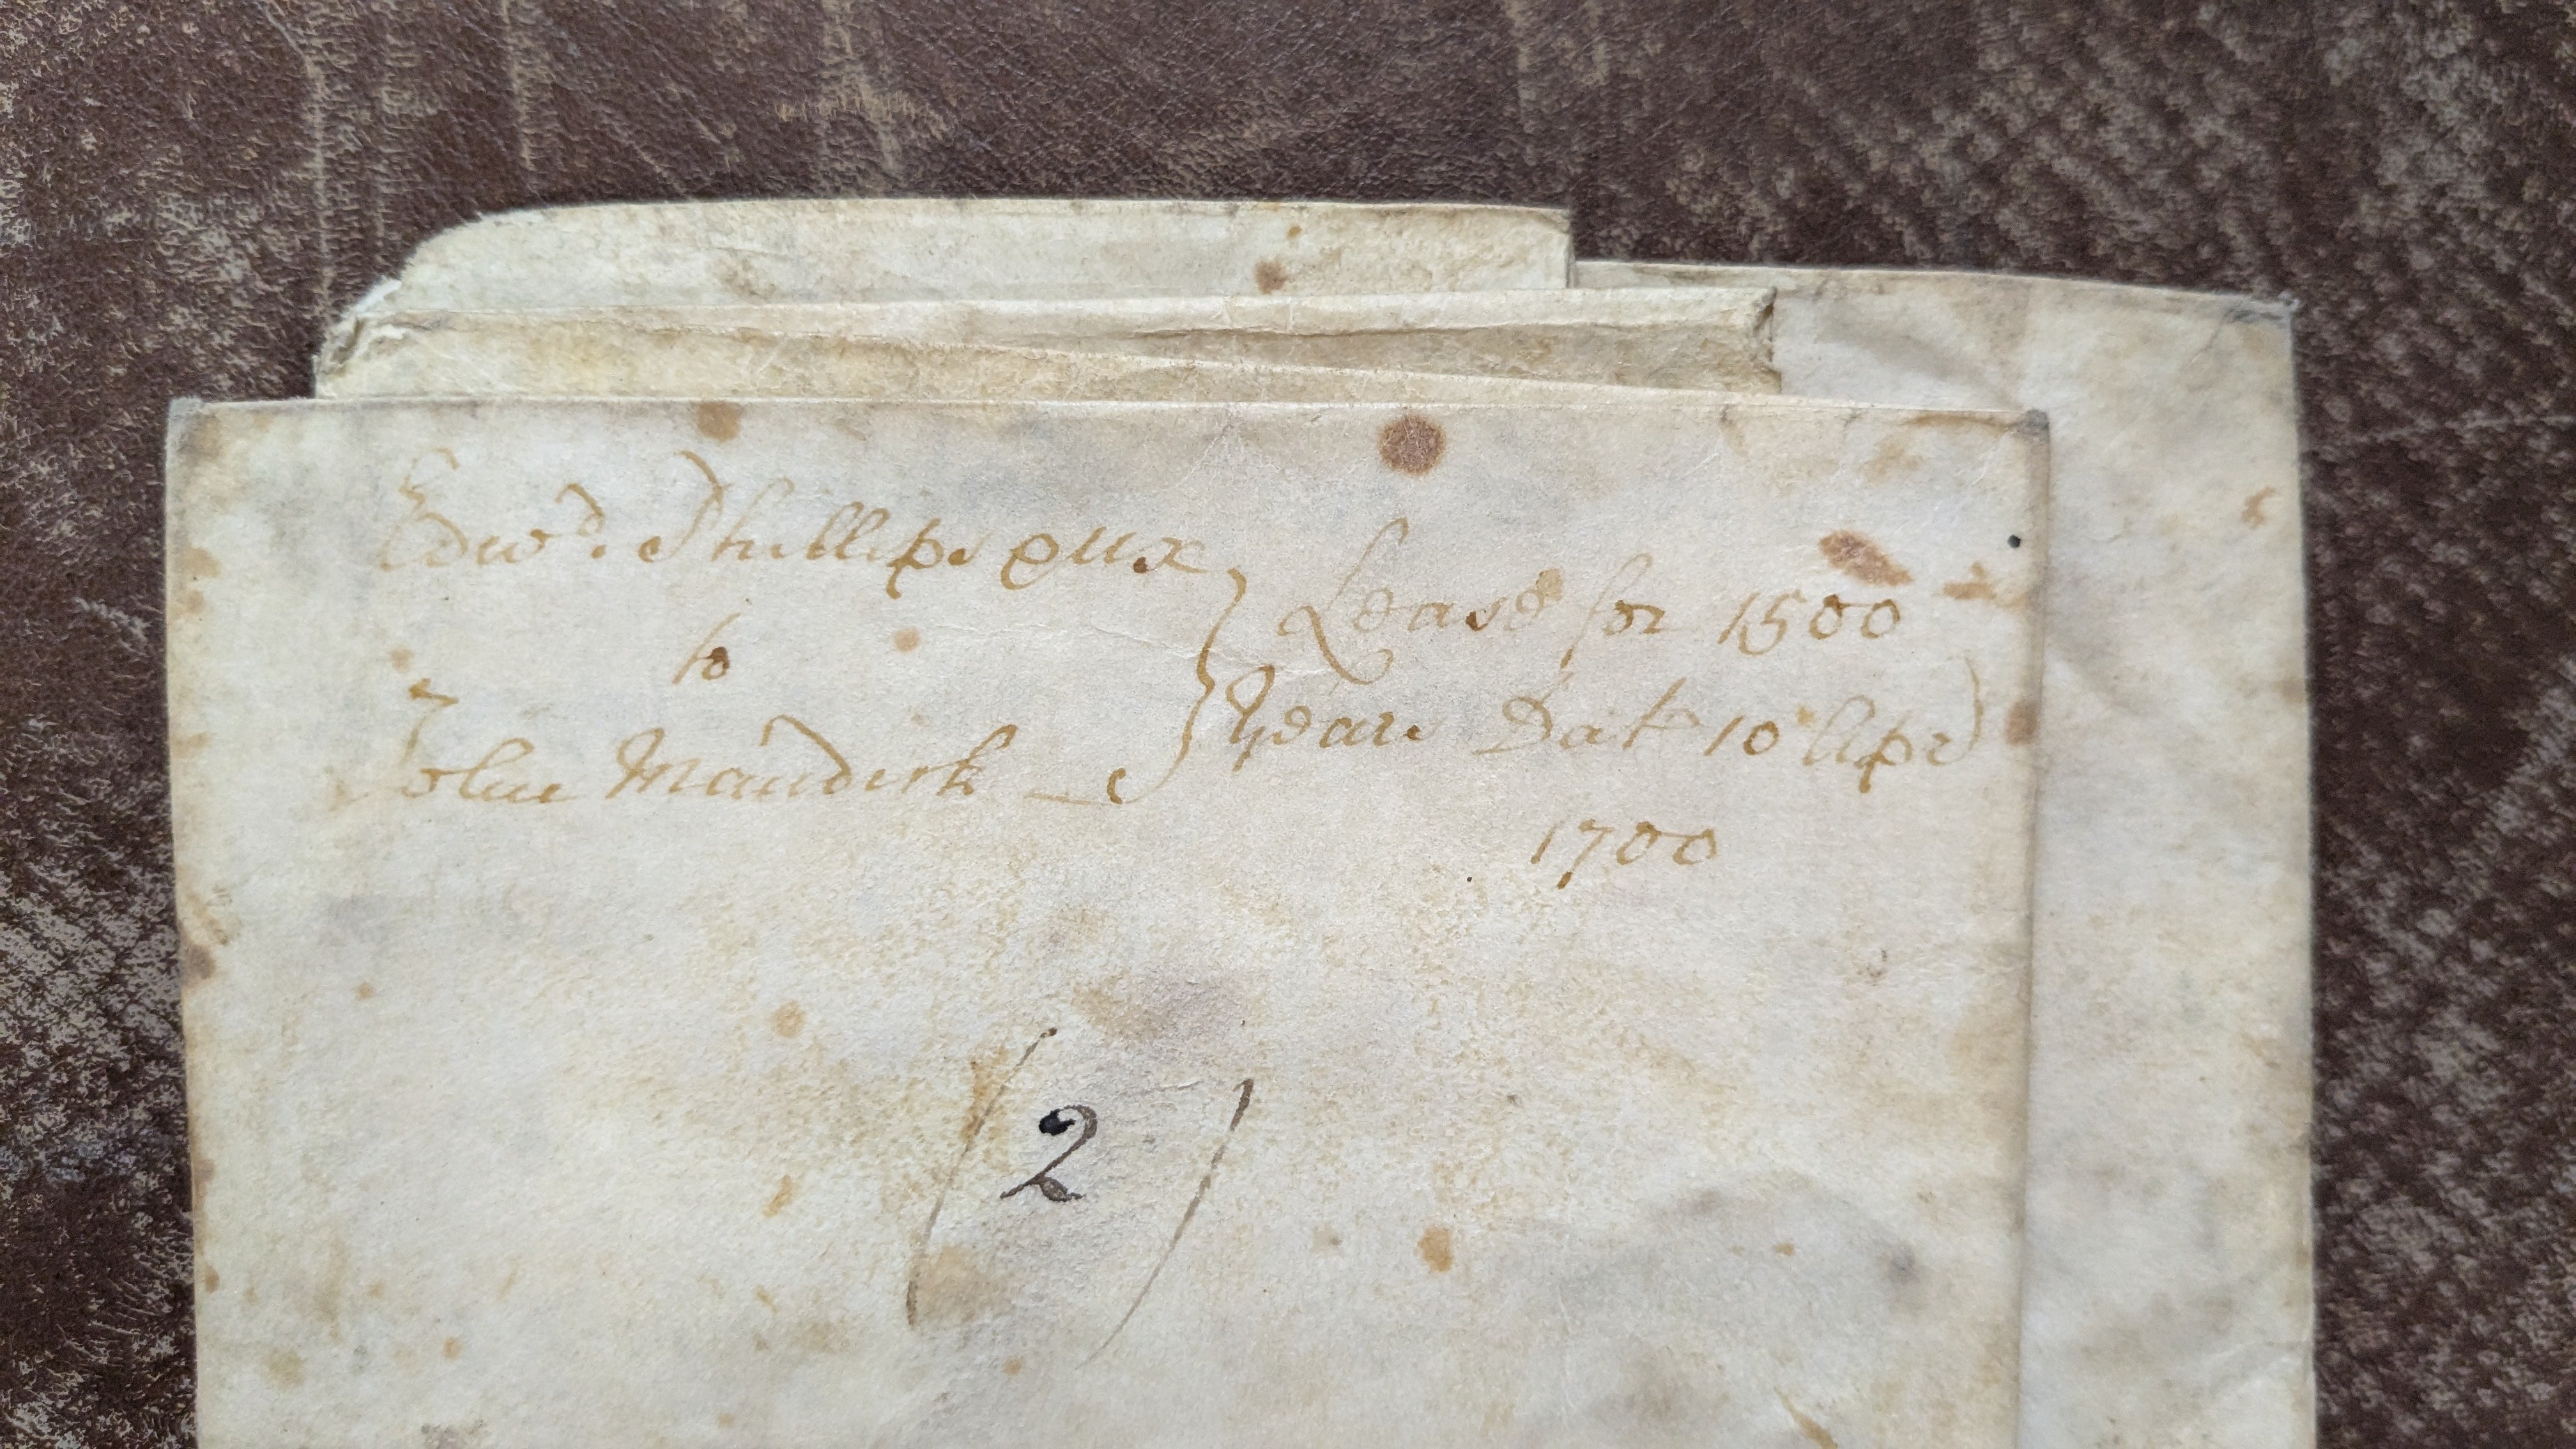 Edwd. Phillips & ux
to
John Maundrk
Lease for 1500
Years Dat 10 Apr
1700
(2)